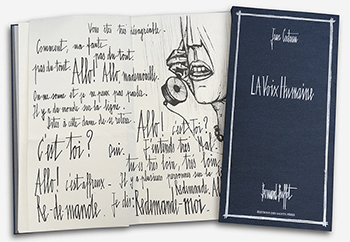 Vous êtes très désagréable.
Comment, ma faute
pas du tout.
pas du tout.
Allo! Allo mademoiselle.
On me sonne et je ne peux pas parler.
Il y a du monde sur la ligne.
Dites à cette dame de se retirer.
c'est toi?
oui.
Allo! c'est affreux.
Re-demande.
Allo!
c'est toi?
J'entends très mal
tu es très loin, très loin,
Il y a plusieurs personnes sur la
Redemande. Allo
je dis: Redemande-moi.
Jean Cocteau
LA Voix Humaine
Bernard Buffet